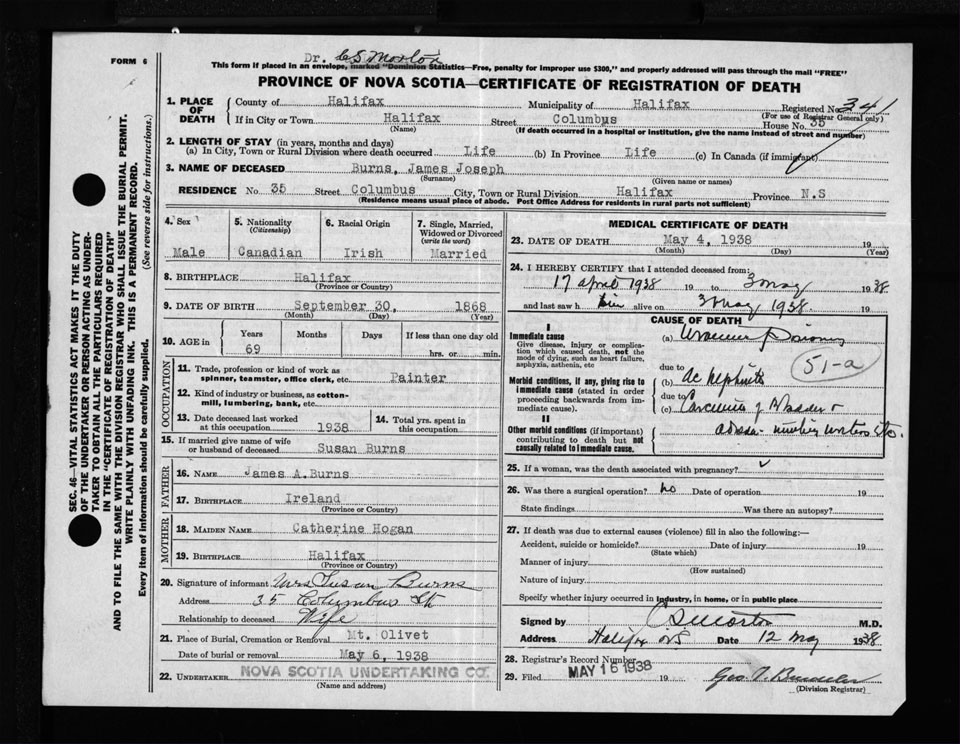 FORM 6
Dr. C S Morton
This form if placed in an envelope, marked "Dominion Statistics—Free, penalty for improper use $300," and properly addressed will pass through the mail "FREE"
PROVINCE OF NOVA SCOTIA—CERTIFICATE OF REGISTRATION OF DEATH
1. PLACE OF DEATH
County of Halifax Municipality of Halifax Registered No. 341
(For use of Registrar General only)
If in City or Town Halifax Street Columbus House No. 35
(Name) (If death occurred in a hospital or institution, give the name instead of street and number)
2. LENGTH OF STAY (in years, months and days)
(a) In City, Town or Rural Division where death occurred Life (b) In Province Life (c) In Canada (if immigrant)
3. NAME OF DECEASED Burns, James Joseph
(Surname) (Given name or names)
RESIDENCE No. 35 Street Columbus City, Town or Rural Division Halifax Province N.S
(Residence means usual place of abode. Post Office Address for residents in rural parts not sufficient)
SEC. 46—VITAL STATISTICS ACT MAKES IT THE DUTY
OF THE UNDERTAKER OR PERSON ACTING AS UNDER-
TAKER TO OBTAIN ALL THE PARTICULARS REQUIRED
IN THE "CERTIFICATE OF REGISTRATION OF DEATH"
AND TO FILE THE SAME WITH THE DIVISION REGISTRAR WHO SHALL ISSUE THE BURIAL PERMIT.
WRITE PLAINLY WITH UNFADING INK. THIS IS A PERMANENT RECORD.
Every item of information should be carefully supplied. (See reverse side for instructions.)
4. Sex
Male
5. Nationality
(Citizenship)
Canadian
6. Racial Origin
Irish
7. Single, Married,
Widowed or Divorced
(write the word)
Married
8. BIRTHPLACE Halifax
(Province or Country)
9. DATE OF BIRTH September 30, 1868
(Month) (Day) (Year)
10. AGE in Years Months Days If less than one day old
69 hrs. or min.
OCCUPATION
11. Trade, profession or kind of work as
spinner, teamster, office clerk, etc. Painter
12. Kind of industry or business, as cotton-
mill, lumbering, bank, etc.
13. Date deceased last worked
at this occupation 1938
14. Total yrs. spent in
this occupation
15. If married give name of wife
or husband of deceased Susan Burns
FATHER
16. NAME James A. Burns
17. BIRTHPLACE Ireland
(Province or Country)
MOTHER
18. MAIDEN NAME Catherine Hogan
19. BIRTHPLACE Halifax
(Province or Country)
20. Signature of informant Mrs Susan Burns
Address 35 Columbus St
Relationship to deceased Wife
21. Place of Burial, Cremation or Removal Mt. Olivet
Date of burial or removal May 6, 1938
22. UNDERTAKER NOVA SCOTIA UNDERTAKING CO.
(Name and address)
MEDICAL CERTIFICATE OF DEATH
23. DATE OF DEATH May 4, 1938 19
(Month) (Day) (Year)
24. I HEREBY CERTIFY that I attended deceased from:
17 April 1938 19 to 3 May 1938
and last saw h im alive on 3 May 1938. 19
CAUSE OF DEATH
I
Immediate cause
Give disease, injury or complica-
tion which caused death, not the
mode of dying, such as heart failure,
asphyxia, asthenia, etc
(a) Uraemic
51-a
due to
Morbid conditions, if any, giving rise to
immediate cause (stated in order
proceeding backwards from im-
mediate cause).
(b) Ac Nephritis
due to
(c) Carcinoma of Bladder
II
Other morbid conditions (if important)
contributing to death but not
causally related to immediate cause.
25. If a woman, was the death associated with pregnancy?
26. Was there a surgical operation? No Date of operation 19
State findings Was there an autopsy?
27. If death was due to external causes (violence) fill in also the following:—
Accident, suicide or homicide? Date of injury 19
(State which)
Manner of injury
(How sustained)
Nature of injury
Specify whether injury occurred in industry, in home, or in public place
Signed by C S Morton M.D.
Address Halifax NS Date 12 May 1938
28. Registrar's Record Number
29. Filed MAY 16 1938 19
(Division Registrar)